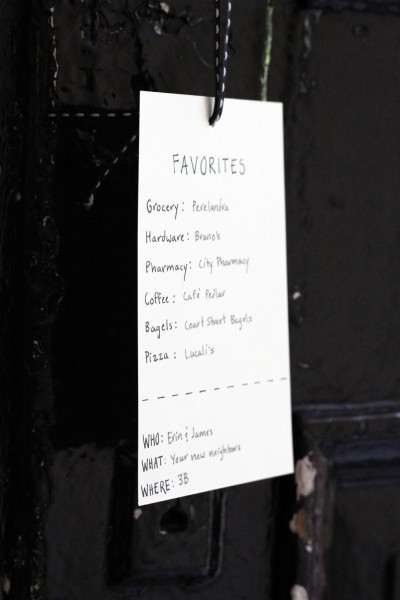 FAVORITES
Grocery: Perelandra
Hardware: Bruno's
Pharmacy: City Pharmacy
Coffee: Café Pedlar
Bagels: Court Street Bagels
Pizza: Lucali's
WHO: Erin & James
WHAT: Your new neighbors
WHERE: 3B